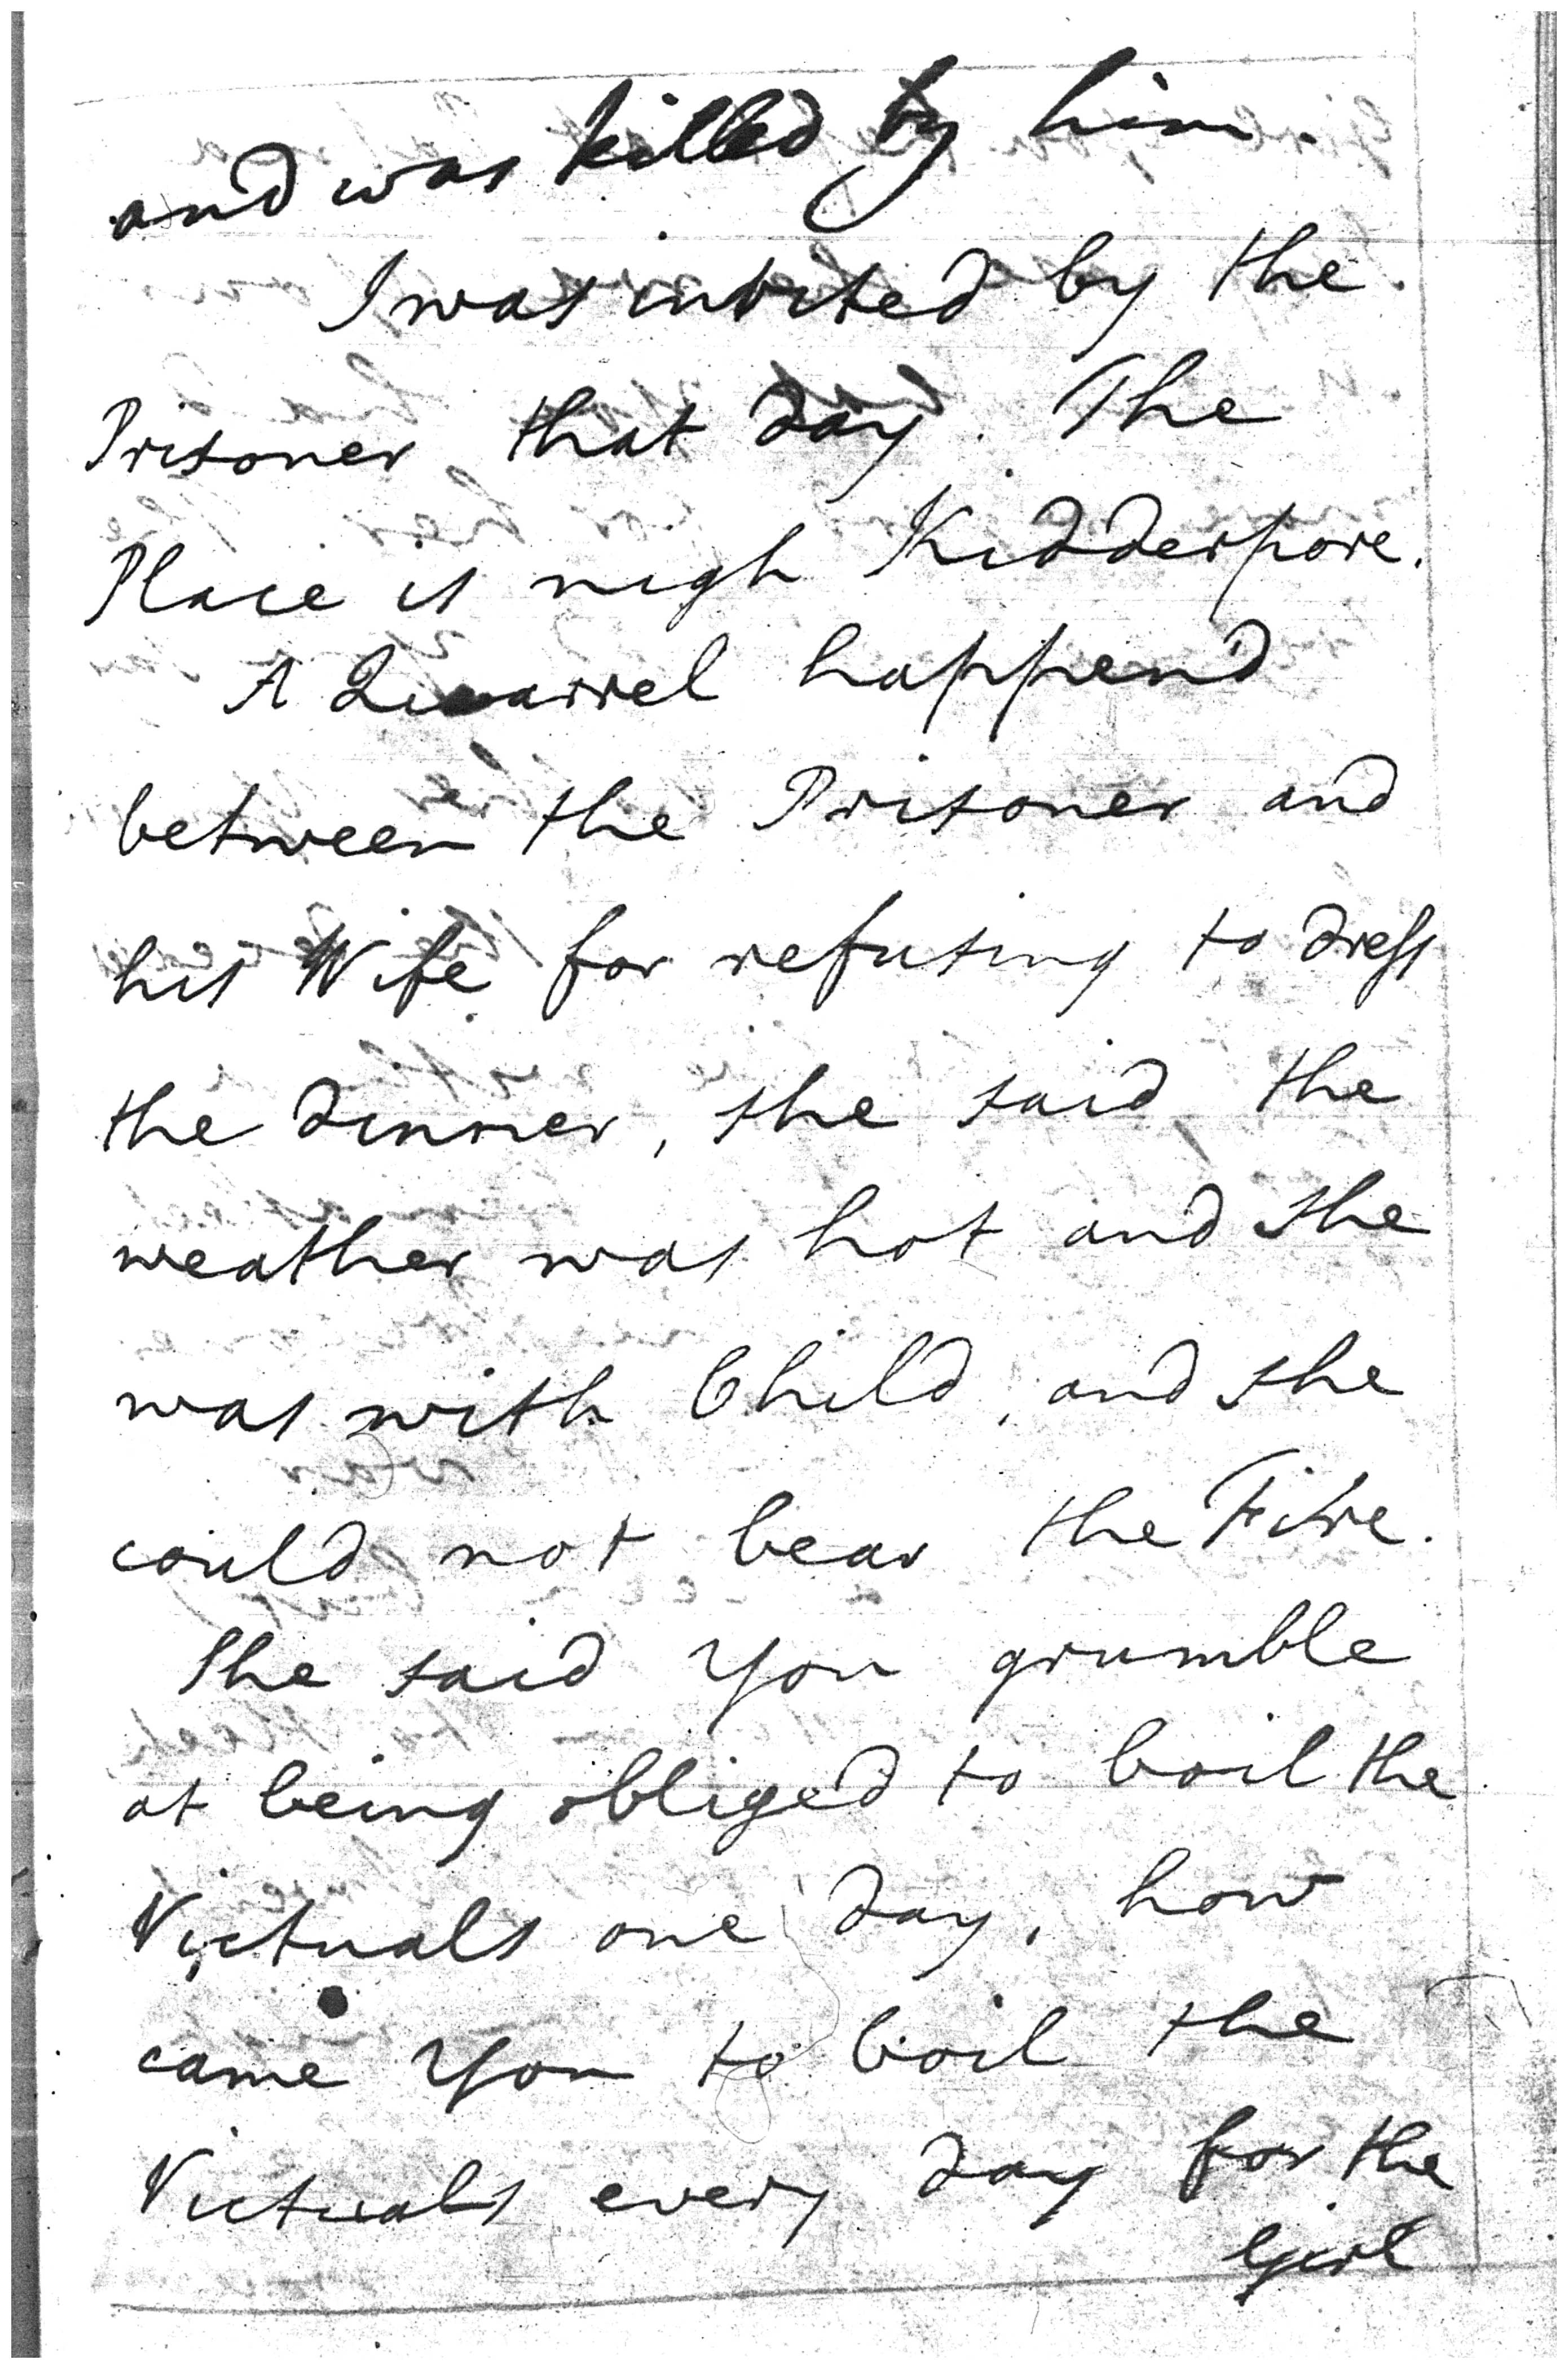 and was killed by him.
I was invited by the
Prisoner that day. The
Place is nigh Kidderpore.
A Quarrel happen'd
between the Prisoner and
his Wife for refusing to dress
the dinner, she said the
weather was hot and she
was with Child, and she
could not bear the Fire.
She said You grumble
at being obliged to boil the
Victuals one day, how
came You to boil the
Victuals every day for the
Girl